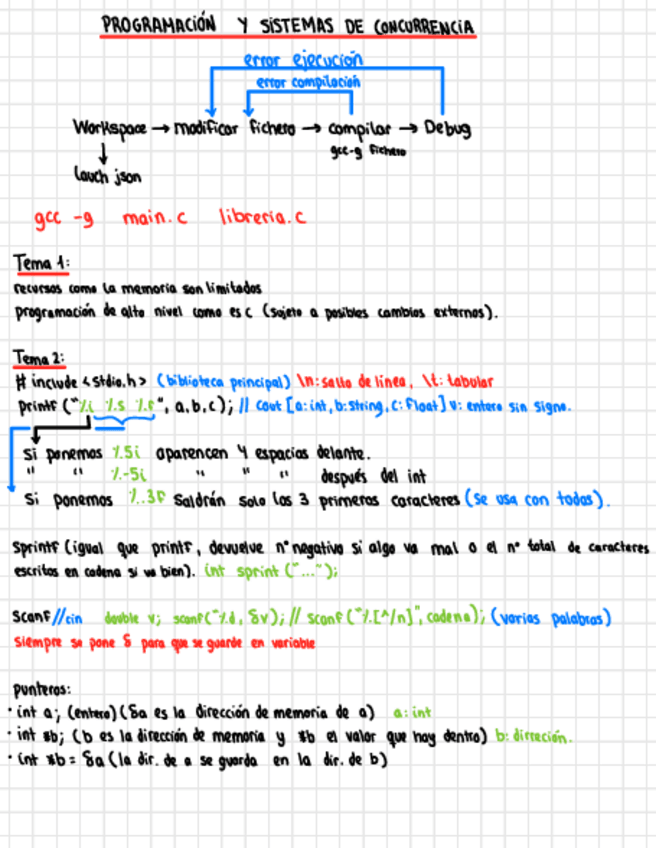 PROGRAMACIÓN Y SISTEMAS DE CONCURRENCIA
error ejecución
error compilación
Workspace → modificar fichero → compilar → Debug
gcc-g fichero
lauch json
gcc -g main.c libreria.c
Tema 1:
recursos como la memoria son limitados
programación de alto nivel como es c (sujeto a posibles cambios externos).
Tema 2:
# include <stdio.h> (biblioteca principal) \n: salto de línea, \t: tabular
printf ("%i %s %f", a,b,c); // cout [a: int, b: string, c: float] v: entero sin signo.
si ponemos %5i aparencen 4 espacios delante.
" " %-5i " " " después del int
Si ponemos %.3f Saldrán solo los 3 primeros caracteres (se usa con todos).
Sprintf (igual que printf, devuelve nº negativo si algo va mal o el nº total de caracteres
escritos en cadena si va bien). int sprint ("...");
Scanf //cin double v; scanf("%d, &v); // scanf ("%[^/n]", cadena); (varias palabras)
Siempre se pone & para que se guarde en variable
punteros:
· int a; (entero) (&a es la dirección de memoria de a) a: int
· int *b; (b es la dirección de memoria y *b el valor que hay dentro) b: dirección.
· int *b = &a (la dir. de a se guarda en la dir. de b)